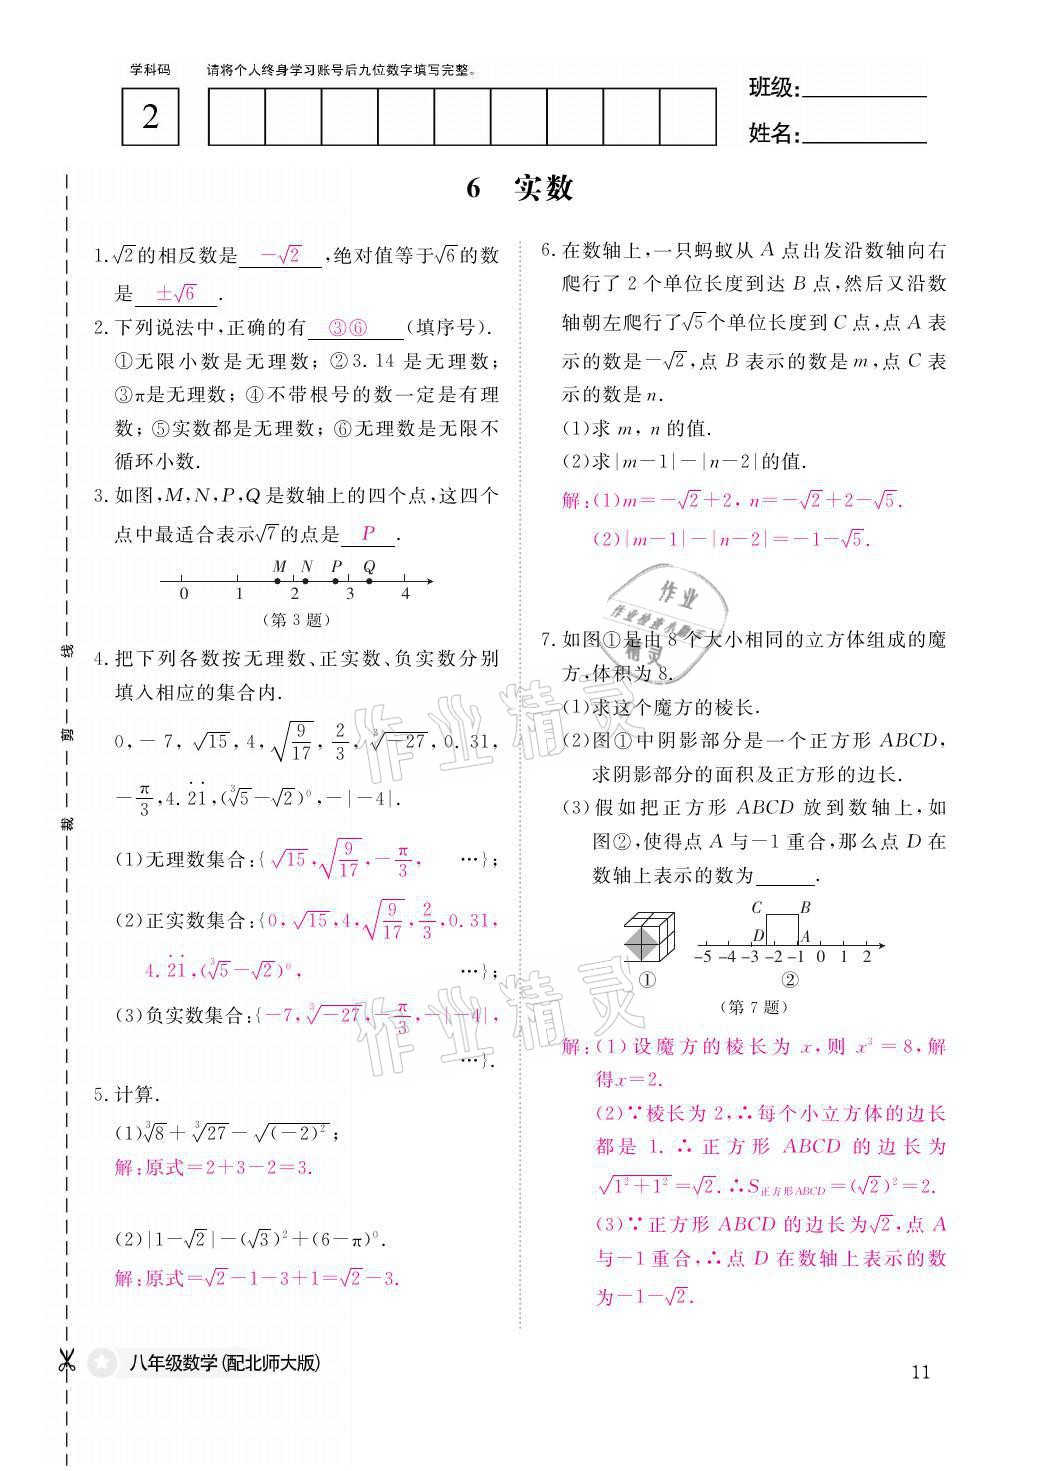 学科码 请将个人终身学习账号后九位数字填写完整。
2
班级:
姓名:
6 实数
1.√2的相反数是 -√2 ,绝对值等于√6的数
是 ±√6 .
2.下列说法中,正确的有 ③⑥ (填序号).
①无限小数是无理数;②3.14是无理数;
③π是无理数;④不带根号的数一定是有理
数;⑤实数都是无理数;⑥无理数是无限不
循环小数.
3.如图,M,N,P,Q是数轴上的四个点,这四个
点中最适合表示√7的点是 P .
M N P Q
0 1 2 3 4
(第3题)
4.把下列各数按无理数、正实数、负实数分别
填入相应的集合内.
0,-7,√15,4,√(9/17),2/3,∛-27,0.31,
-π/3,4.2̇1̇,(∛5-√2)⁰,-|-4|.
(1)无理数集合:{√15,√(9/17),-π/3, …};
(2)正实数集合:{0,√15,4,√(9/17),2/3,0.31,
4.2̇1̇,(∛5-√2)⁰, …};
(3)负实数集合:{-7,∛-27,-π/3,-|-4|,
…}.
5.计算.
(1)∛8+∛27-√(-2)²;
解:原式=2+3-2=3.
(2)|1-√2|-(√3)²+(6-π)⁰.
解:原式=√2-1-3+1=√2-3.
线
剪
裁
八年级数学(配北师大版)
6.在数轴上,一只蚂蚁从A点出发沿数轴向右
爬行了2个单位长度到达B点,然后又沿数
轴朝左爬行了√5个单位长度到C点,点A表
示的数是-√2,点B表示的数是m,点C表
示的数是n.
(1)求m,n的值.
(2)求|m-1|-|n-2|的值.
解:(1)m=-√2+2,n=-√2+2-√5.
(2)|m-1|-|n-2|=-1-√5.
作业
作业检查小助手
精灵
7.如图①是由8个大小相同的立方体组成的魔
方,体积为8.
(1)求这个魔方的棱长.
(2)图①中阴影部分是一个正方形ABCD,
求阴影部分的面积及正方形的边长.
(3)假如把正方形ABCD放到数轴上,如
图②,使得点A与-1重合,那么点D在
数轴上表示的数为 .
C B
D A
-5 -4 -3 -2 -1 0 1 2
① ②
(第7题)
解:(1)设魔方的棱长为x,则x³=8,解
得x=2.
(2)∵棱长为2,∴每个小立方体的边长
都是1.∴正方形ABCD的边长为
√1²+1²=√2.∴S正方形ABCD=(√2)²=2.
(3)∵正方形ABCD的边长为√2,点A
与-1重合,∴点D在数轴上表示的数
为-1-√2.
作业精灵
作业精灵
11